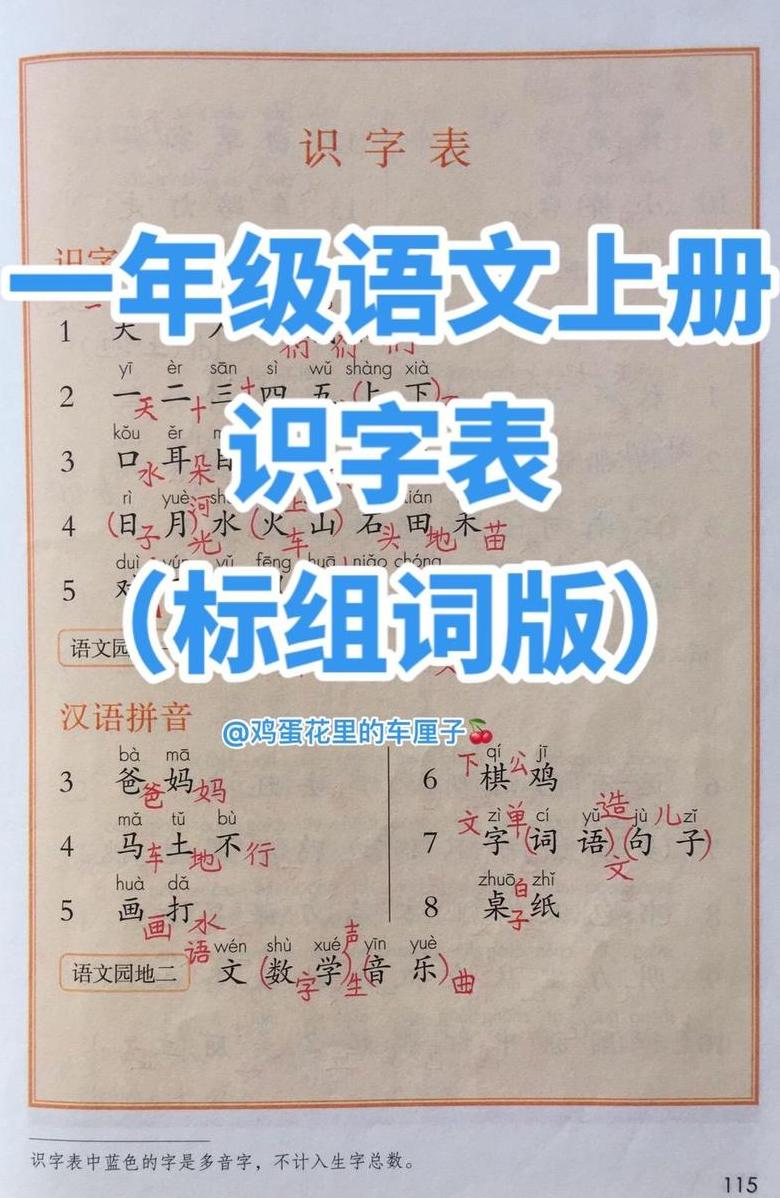 识字表
识字
一年级语文上册
1 天 人
们 们 们
yī èr sān sì wǔ shàng xià
2 一天二十三十四 五(上 下)
识字表
kǒu ěr
3 口水耳朵目
rì yuè
4 (日子月)河光水(火车山)上石头田地禾苗
duì yún yǔ fēng huā niǎo chóng
5 对
(标组词版)
语文园
汉语拼音
@鸡蛋花里的车厘子🍒
bà mā
3 爸爸妈妈
mǎ tǔ bù
4 马车土地不行
huà dǎ
5 画画打水
qí jī
6 下棋公鸡
zì cí yǔ jù zǐ
7 文字单(词 语)语文造(句 子)儿
zhuō zhǐ
8 桌子白纸
wén shù xué yīn yuè
语文园地二 语文(数字学生)声(音 乐)曲
识字表中蓝色的字是多音字，不计入生字总数。
115